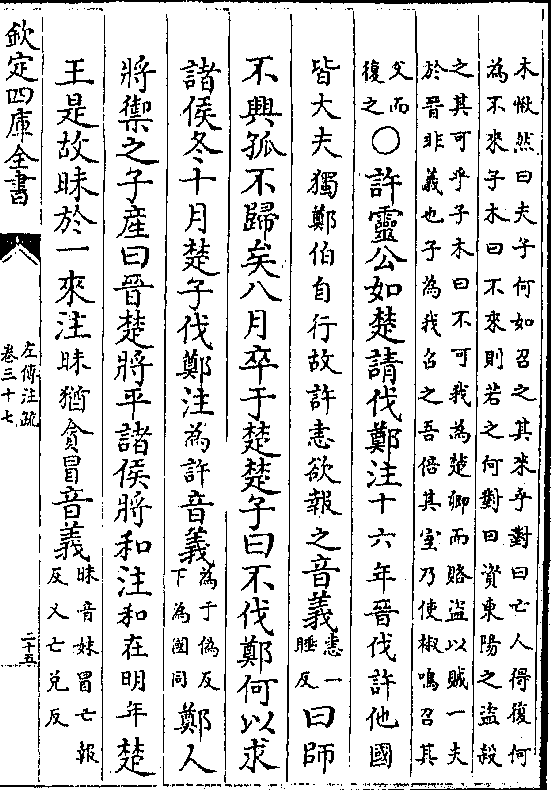 木愀然曰夫子何如召之其來乎對曰亡人得復何
為不來子木曰不來則若之何對曰資東陽之盜殺
之其可乎子木曰不可我為楚卿而賂盜以賊一夫
於晉非義也子為我召之吾倍其室乃使椒鳴召其
父而復之〇許靈公如楚請伐鄭注十六年晉伐許他國
皆大夫獨鄭伯自行故許恚欲報之音義恚一睡反曰師
不興孤不歸矣八月卒于楚楚子曰不伐鄭何以求
諸侯冬十月楚子伐鄭注為許音義為于偽反下為國同鄭人
將禦之子產曰晉楚將平諸侯將和注和在明年楚
王是故昧於一來注昧猶貪冒音義昧音妹冒亡報反又亡兌反
欽定四庫全書
左傳注疏
卷三十七
二十五